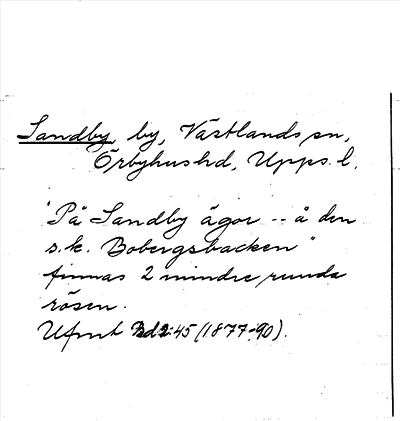 Sandby, by, Västlands sn,
Örbyhus hd, Upps. l.
"På Sandby ägor -- å den
s.k. Bobergsbacken"
finnas 2 mindre runda
rösen.
Ufmt Bd 2:45 (1877-90).